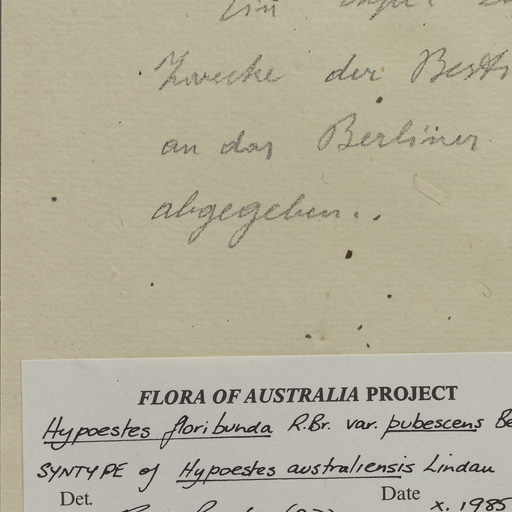 Ein
Zwecke der
an das Berliner
abgegeben..
FLORA OF AUSTRALIA PROJECT
Hypoestes floribunda R.Br. var. pubescens Be
SYNTYPE of Hypoestes australiensis Lindau
Det. Date x. 1985